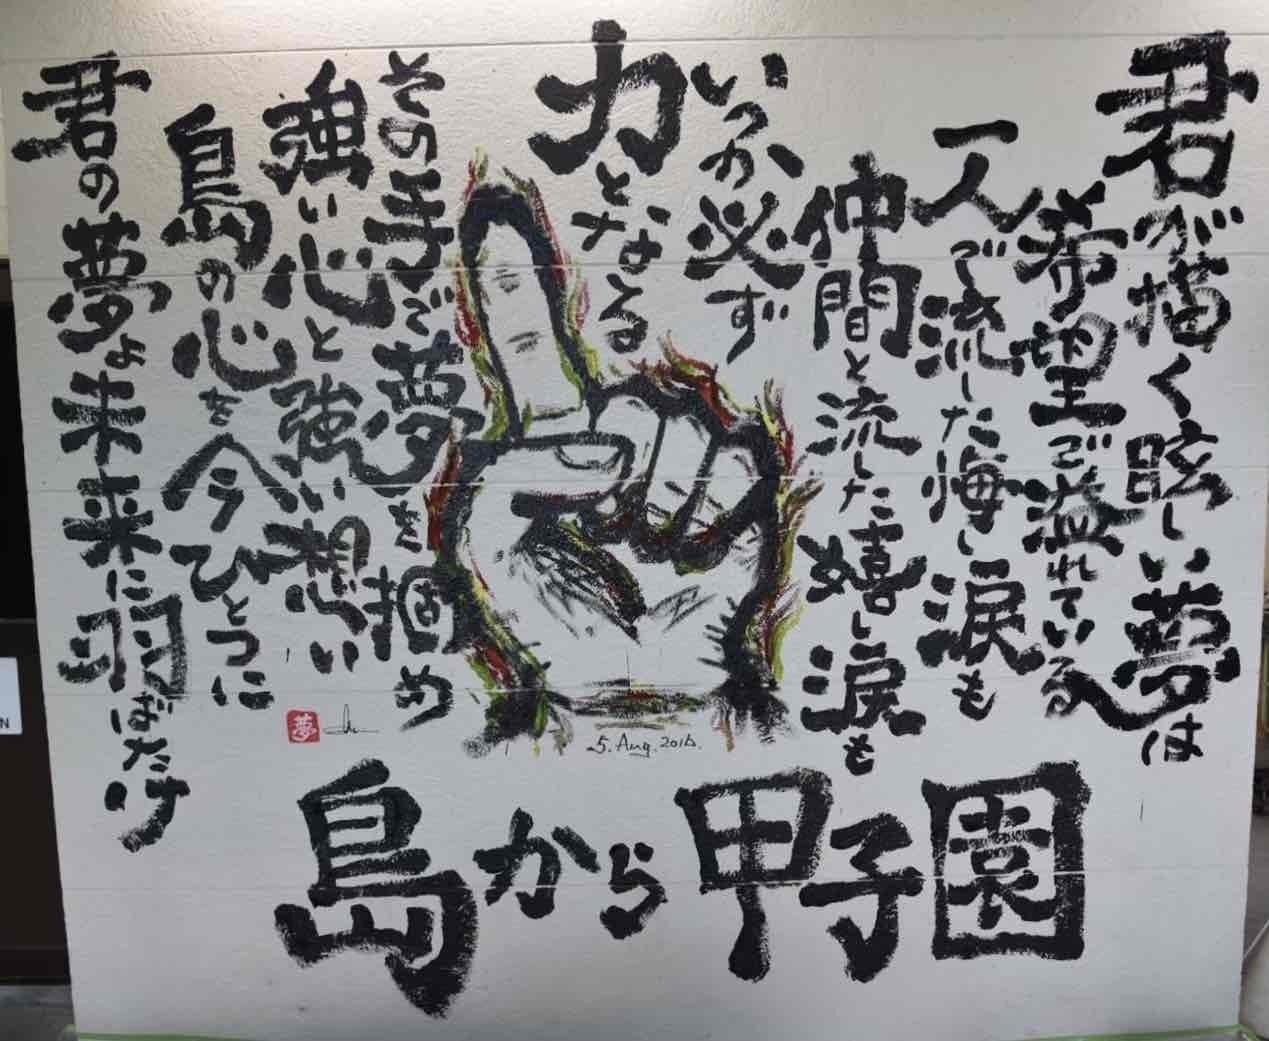 君が描く眩しい夢は
希望で溢れている
一人で流した悔し涙も
仲間と流した嬉し涙も
いつか必ず
力となる
その手で夢を掴め
強い心と強い想い
島の心を今ひとつに
君の夢よ未来に羽ばたけ
夢
5. Aug. 2016.
島から甲子園
N